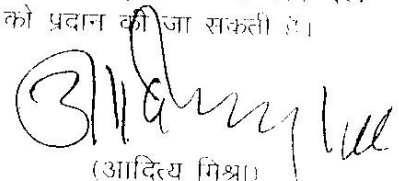 को प्रदान की जा सकती है।
(आदित्य मिश्रा)